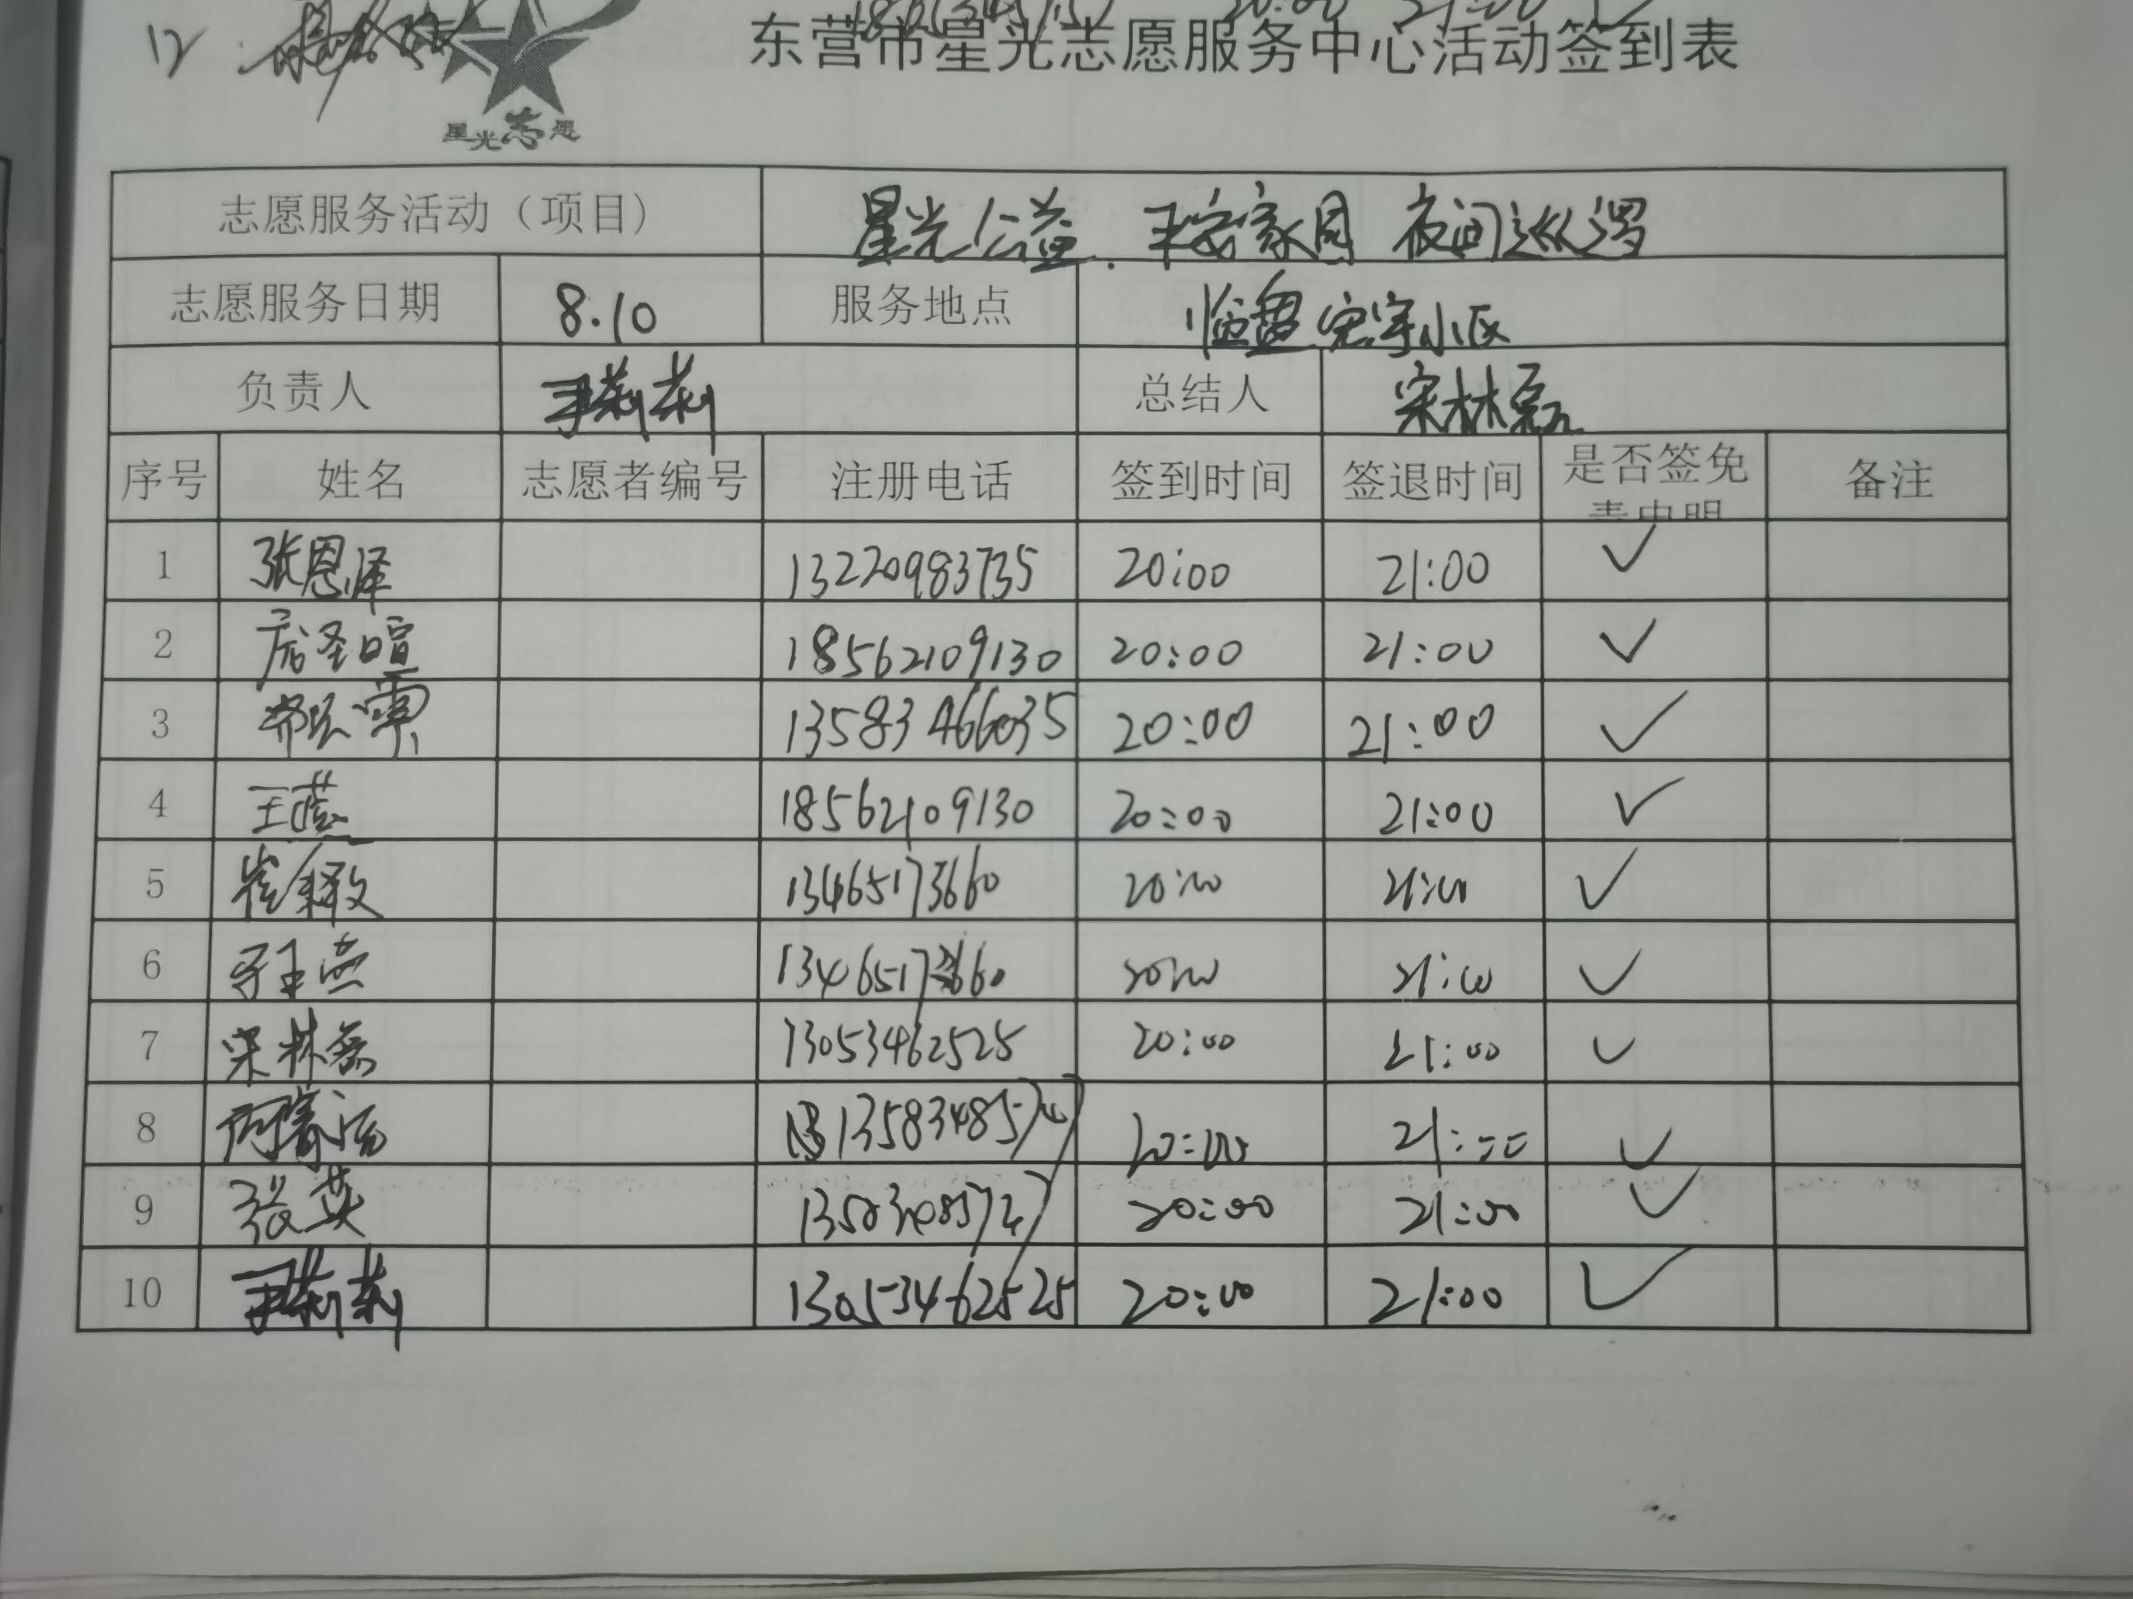 12
东营市星光志愿服务中心活动签到表
星光志愿
志愿服务活动（项目） 星光公益、平安家园 夜间巡逻
志愿服务日期 8.10 服务地点 临盘宏宇小区
负责人 王莉莉 总结人 宋林磊
序号 姓名 志愿者编号 注册电话 签到时间 签退时间 是否签免责申明 备注
1 张恩泽 13220983735 20:00 21:00 ✓
2 18562109130 20:00 21:00 ✓
3 13583466035 20:00 21:00 ✓
4 18562109130 20:00 21:00 ✓
5 13465173660 20:00 21:00 ✓
6 20:00 21:00 ✓
7 宋林磊 13053462525 20:00 21:00 ✓
8 20:00 21:00 ✓
9 张英 20:00 21:00 ✓
10 王莉莉 13053462525 20:00 21:00 ✓